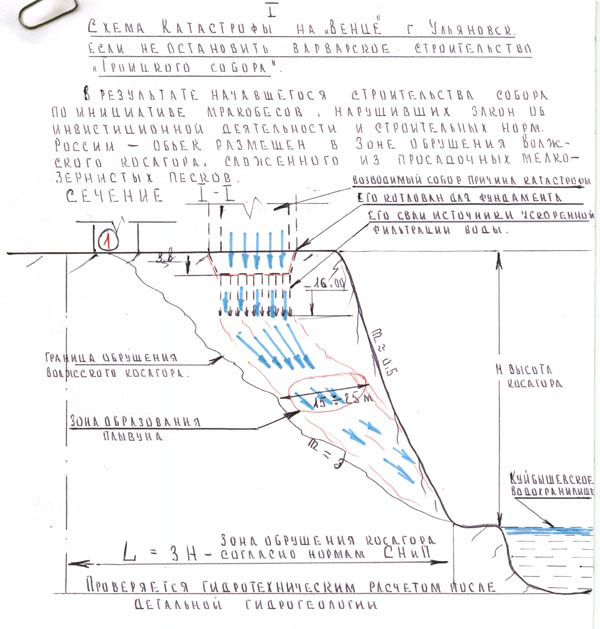 I
Схема Катастрофы на „Венце" г Ульяновск.
если не остановить варварское строительство
„Троицкого собора".
В результате начавшегося строительства собора
по инициативе мракобесов, нарушивших закон об
инвистиционной деятельности и строительных норм.
России – объек размещен в Зоне обрушения Волж-
ского косагора, сложенного из просадочных мелко-
зернистых песков.
Сечение I-I
возводимый собор причина катастрофы
Его котлован для фундамента
Его сваи источники ускоренной
фильтрации воды.
1
3,8
-16.00
m = 0,5
Граница обрушения
Волжского косагора.
H высота
косагора
15 ÷ 25 м
Зона образования
плывуна
m = 3
Куйбышевское
водохранилищ
Зона обрушения косагора
L = 3H – согласно нормам СНиП
Проверяется гидротехническим расчетом после
детальной гидрогеологии